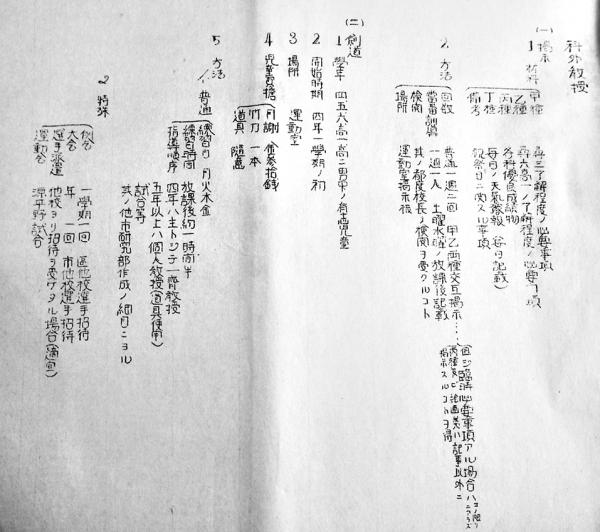 科外教授
(一)掲示
1 材料
甲種 尋三了解程度ノ必要事項
乙種 尋六高一ノ了解程度ノ必要事項
丙種 各科優良成績物
丁種 毎日ノ天気豫報
備考 祝祭日ニ関スル事項
2 方法
回数 普通一週二回 甲乙両種交互掲示
當番訓導 一週一人 土曜水曜ノ放課後記載
検閲 其ノ都度校長ノ検閲ヲ受クルコト
場所 運動室掲示板
但シ臨時必要事項アル場合ハ
掲示スルコトヲ得
(二)剣道
1 學年 四五六高一高二男中ノ有志児童
2 開始時期 四年一學期ノ初
3 場所 運動室
4 児童負擔
月謝 金参拾銭
竹刀 一本
道具 随意
5 方法
イ 普通
練習日 月火木金
練習時間 放課後約一時間半
指導順序 四年ハ主トシテ一齊教授
五年以上ハ個人教授(道具使用)
試合等
其ノ他市研究部作成ノ細目ニヨル
2 特殊
例会 一學期一回 區他校選手招待
大会 年一回 市他校選手招待
選手派遣 他校ヨリ招待ヲ受ケタル場合(適宜)
運動会 源平野試合